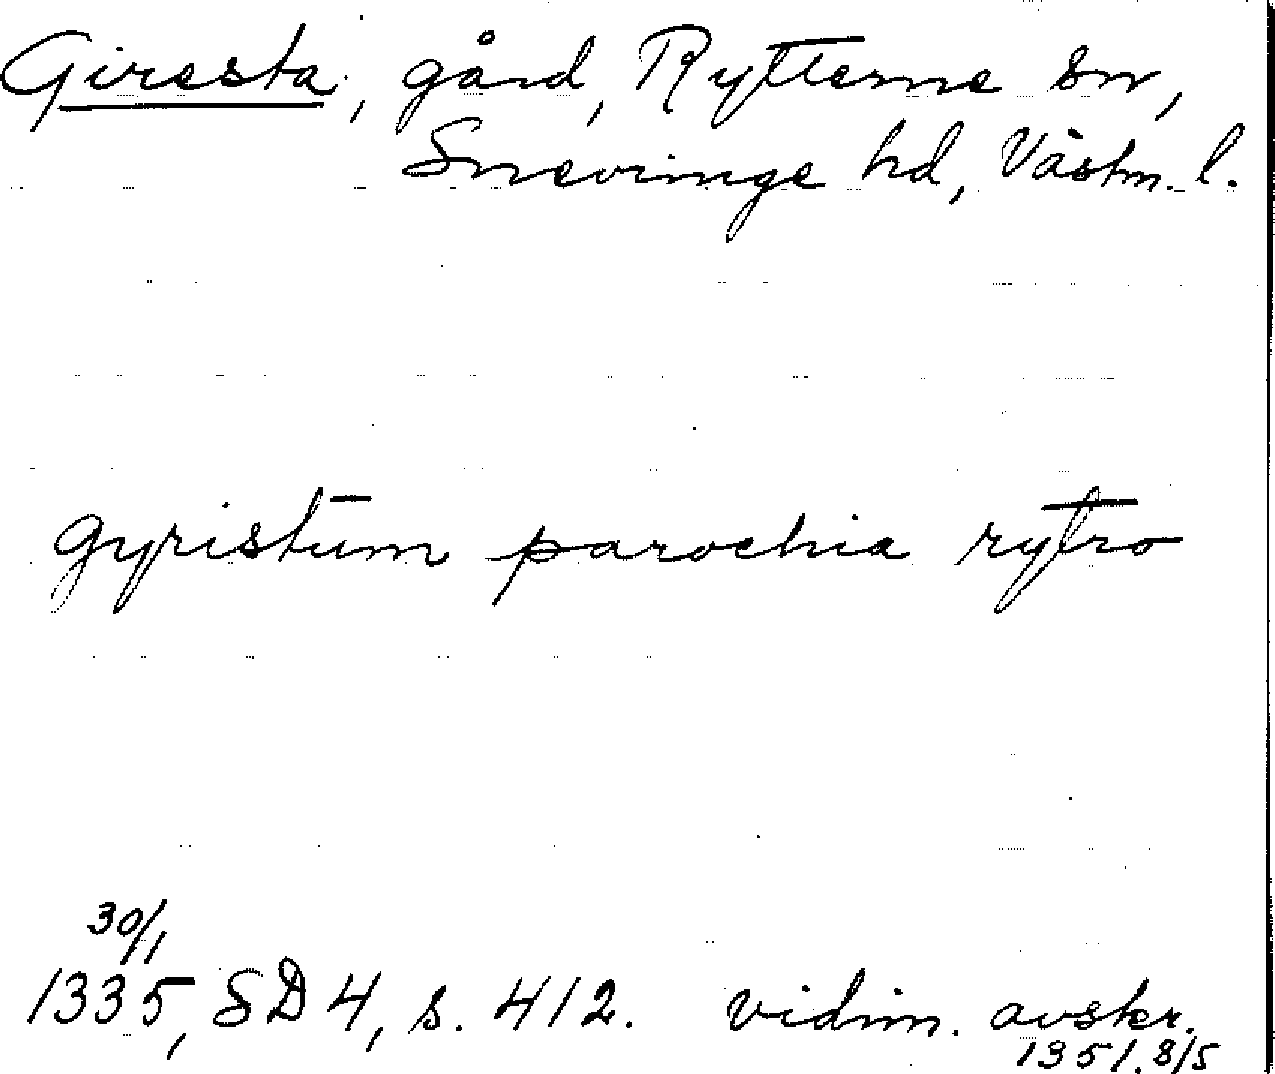 Giresta, gård, Rytterne sn,
Snevringe hd, Västm. l.
gyristum parochia rytro
30/1
1335, SD 4, s. 412. vidim. avskr.
1351. 8/5